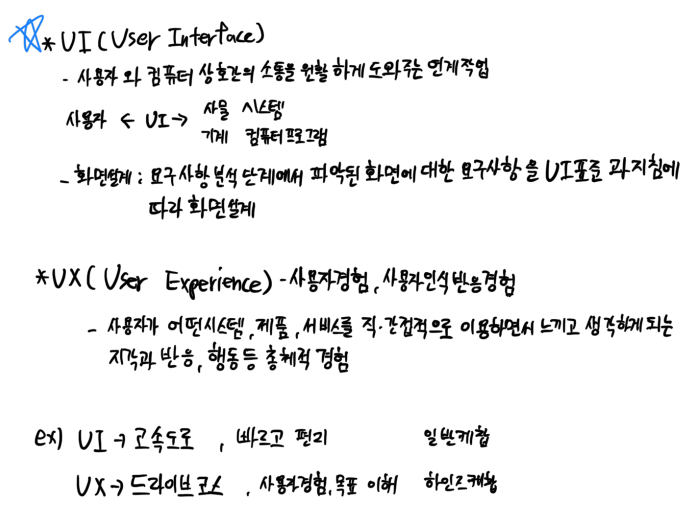 * UI (User Interface)
- 사용자와 컴퓨터 상호간의 소통을 원활하게 도와주는 연계작업
사용자 ← UI → 사물 시스템
기계 컴퓨터프로그램
- 화면설계 : 요구사항 분석 단계에서 파악된 화면에 대한 요구사항을 UI표준과 지침에
따라 화면설계
* UX ( User Experience) - 사용자경험, 사용자인식반응경험
- 사용자가 어떤시스템, 제품, 서비스를 직·간접적으로 이용하면서 느끼고 생각하게되는
지각과 반응, 행동등 총체적 경험
ex) UI → 고속도로 , 빠르고 편리 일반케찹
UX → 드라이브코스 , 사용자경험, 목표 이해 하인즈케찹